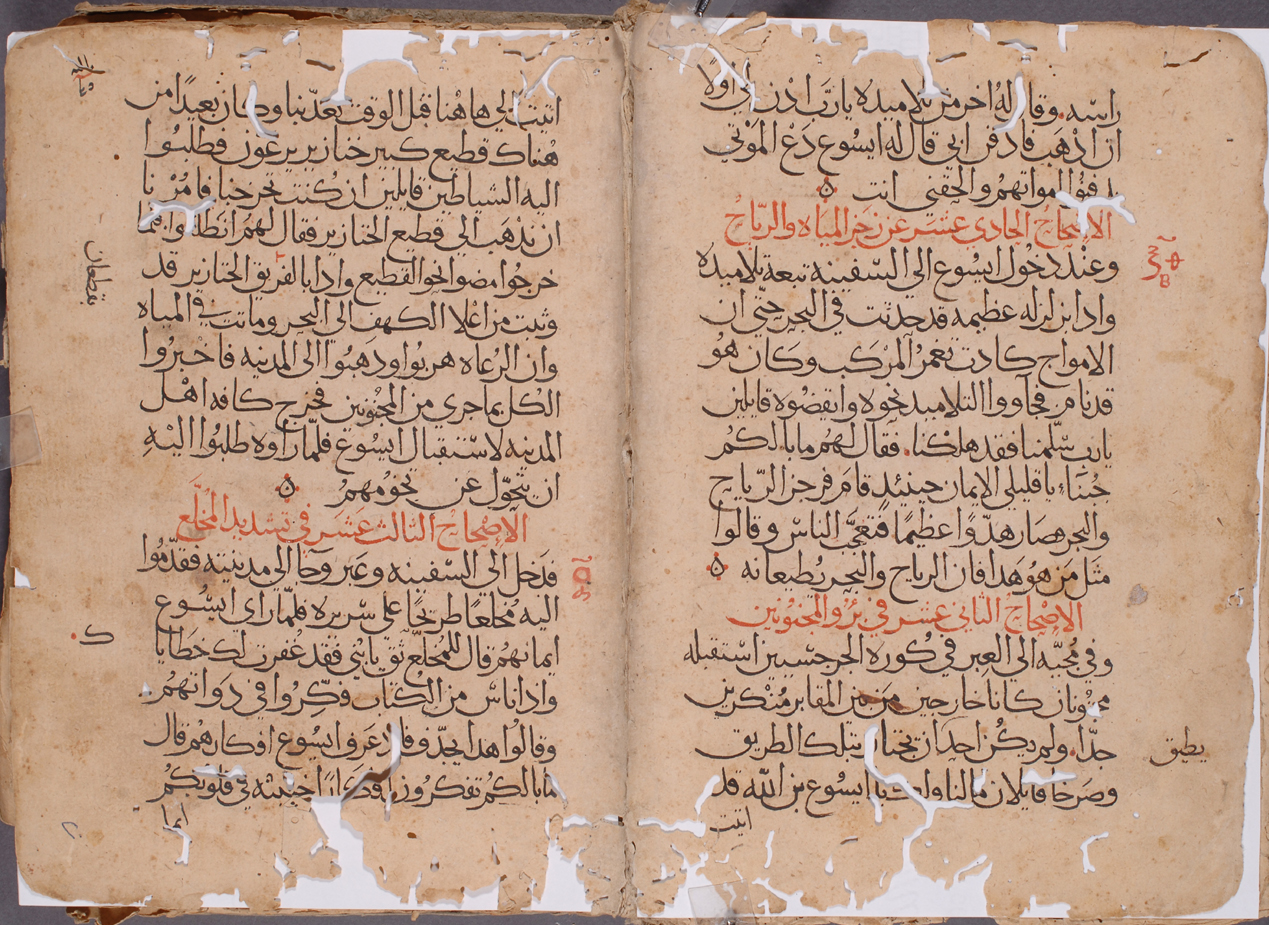 راسه. وقال له اخر من تلاميده يارب ادن لي اولًا
ان ادهب فادفن ابي قال له ايسوع دع الموتي
يدفنوا امواتهم والحقني انت ܀
الاصحاح الحادي عشر عن زجر المياه والرياح
وعند دخول ايسوع الي السفينه تبعة تلاميده
وادا بزلزله عظيمه قد حدثت في البحر حتي ان
الامواج كادت تغمر المركب وكان هو
قد نام فجاووا التلاميد نحوه وايقضوه قايلين
يارب سلمنا فقد هلكنا. فقال لهم ما بالكم
جبناء يا قليلي الايمان حينيد قام فزجر الرياح
والبحر فصار هدوًا عظيمًا فتعجب الناس وقالوا
مثل من هو هدا فان الرياح والبحر يطيعانه ܀
الاصحاح الثاني عشر في برو المجنونين
وفي مجيه الي العبر في كورة الجرجسيين استقبله
مجنونان كانا خارجين من بين المقابر منكرين
جدًا. ولم يكن احدًا يجتاز بتلك الطريق
يطيق
وصرخا قايلان ما لنا ولك يا ايسوع بن الله قد
اتيت
اتيت الي هاهنا قبل الوقت تعدبنا وكان بعيدًا من
هناك قطيع كبير خنازير يرعون فطلبوا
اليه الشياطين قايلين ان كنت تخرجنا فامرنا
ان ندهب الي قطيع الخنازير فقال لهم انطلقوا فلما
خرجوا مضوا نحو القطيع وادا بالفريق الخنازير قد
بقطعان
وثبت من اعلا الكهف الي البحر وماتت في المياه
وان الرعاه هربوا ودهبوا الى المدينه فاخبروا
الكل بما جري من المجنونين فخرج كافه اهل
المدينه لاستقبال ايسوع فلما راوه طلبوا اليه
ان يتحول عن تخومهم ܀
الاصحاح الثالث عشر في تشديد المخلع
فدخل الي السفينه وعبر وجا الي مدينته فقدموا
اليه مخلعًا طريحًا علي سريره فلما راي ايسوع
ايمانهم قال للمخلع ثق يا بني فقد غفرت لك خطايا
ك
وادا ناس من الكتاب فكروا في دواتهم.
وقالوا هدا يجدف فاد عرف ايسوع افكارهم قال
ما بالكم تفكرون افكارًا خبيثه في قلوبكم
ايما